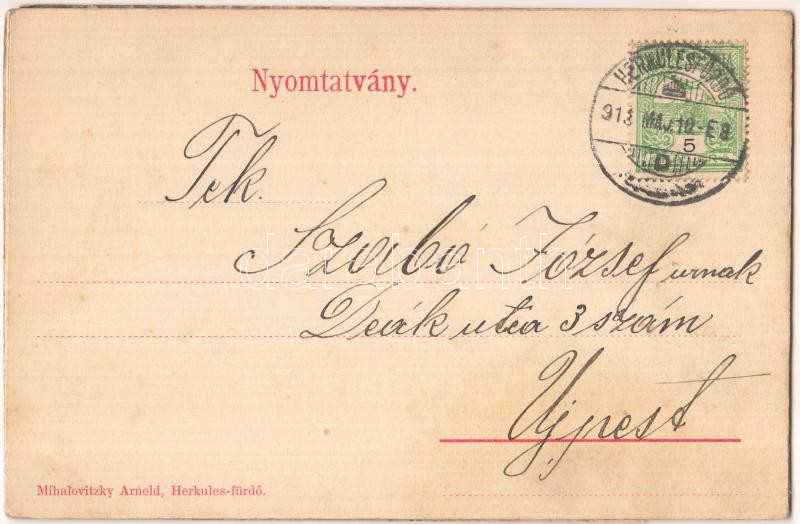 HERKULESFÜRDŐ
913 MÁJ. 10 - E8
5
D
Nyomtatvány.
Tek.
Szabó József urnak
Deák utca 3 szám
Ujpest
Mihalovitzky Arnold, Herkules-fürdő.
darabanth